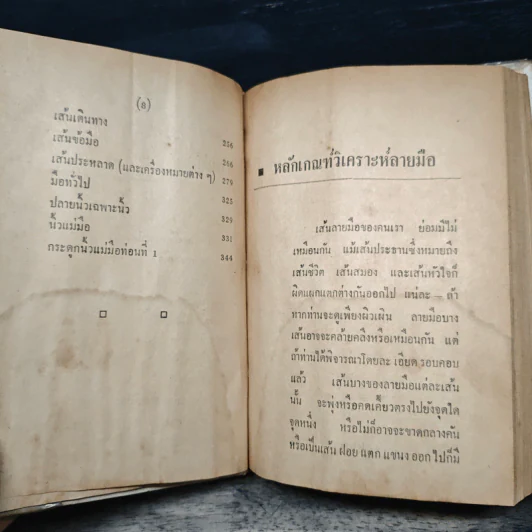 (๘)
เส้นเดินทาง
เส้นข้อมือ 256
เส้นประหลาด (และเครื่องหมายต่าง ๆ) 266
มือทั่วไป 279
ปลายนิ้วเฉพาะนิ้ว 325
นิ้วแม่มือ 329
กระดูกนิ้วแม่มือท่อนที่ 1 331
344
หลักเกณฑ์วิเคราะห์ลายมือ
เส้นลายมือของคนเรา ย่อมมีไม่
เหมือนกัน แม้เส้นประธานซึ่งหมายถึง
เส้นชีวิต เส้นสมอง และเส้นหัวใจก็
ผิดแผกแตกต่างกันออกไป แน่ละ – ถ้า
หากท่านจะดูเพียงผิวเผิน ลายมือบาง
เส้นอาจจะคล้ายคลึงหรือเหมือนกัน แต่
ถ้าท่านได้พิจารณาโดยละเอียด รอบคอบ
แล้ว เส้นบางของลายมือแต่ละเส้น
นั้น จะพุ่งหรือคดเคี้ยวตรงไปยังจุดใด
จุดหนึ่ง หรือไม่ก็อาจจะขาดกลางคัน
หรือเป็นเส้น ฝอย แตก แขนง ออก ไปก็มี